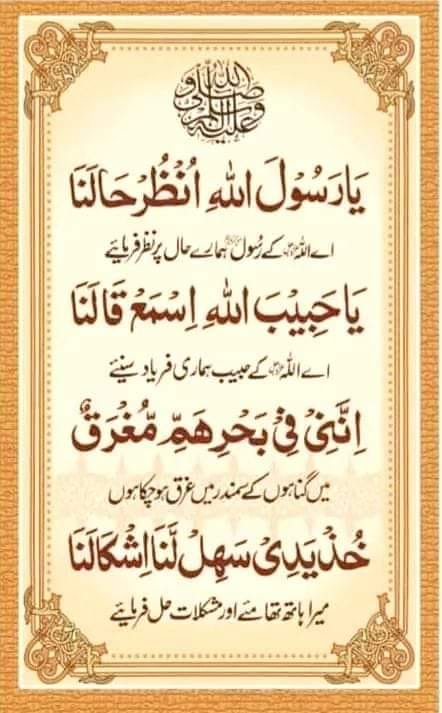 صلى الله عليه وآله وسلم
يَا رَسُوْلَ اللهِ اُنْظُرْ حَالَنَا
اے اللہ کے رسول ہمارے حال پر نظر فرمایئے
يَا حَبِيْبَ اللهِ اِسْمَعْ قَالَنَا
اے اللہ کے حبیب ہماری فریاد سنیئے
اِنَّنِيْ فِيْ بَحْرِ هَمٍّ مُّغْرَقٌ
میں گناہوں کے سمندر میں غرق ہو چکا ہوں
خُذْ يَدِيْ سَهِّلْ لَّنَا اِشْكَالَنَا
میرا ہاتھ تھامیئے اور مشکلات حل فرمایئے